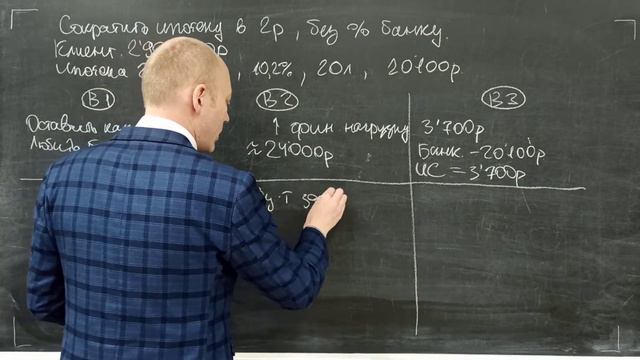 Сократить ипотеку в 2р, без % банку.
Клиент. 2'9
Ипотека , 10,2%, 20л, 20'100р.
В1 В2 В3
Оставить ка ↑ фин нагрузку 3'700р
Любить ≈ 24'000р Банк. -20'100р
ИС = 3'700р